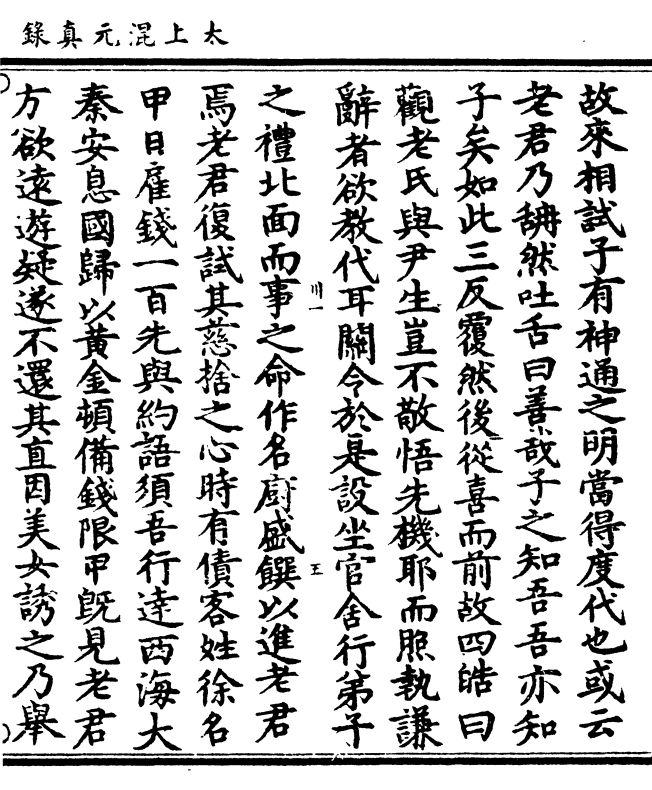 太上混元真錄
故來相試子有神通之明當得度代也或云
老君乃聃然吐舌曰善哉子之知吾吾亦知
子矣如此三反覆然後從喜而前故四皓曰
觀老氏與尹生豈不敬悟先機耶而照執謙
辭者欲教代耳關令於是設坐官舍行弟子
之禮北面而事之命作名廚盛饌以進老君
焉老君復試其慈捨之心時有債客姓徐名
甲日雇錢一百先與約語須吾行達西海大
秦安息國歸以黃金頓備錢限甲旣見老君
方欲遠遊疑遂不還其直因美女誘之乃舉